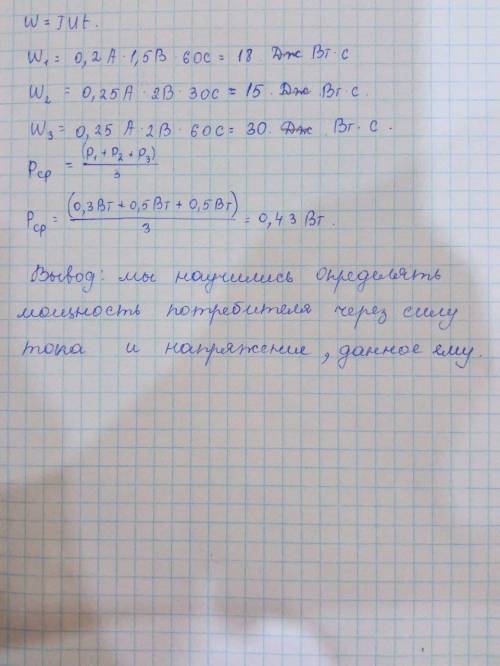 W = IUt.
W₁ = 0,2 А · 1,5 В · 60 с = 18 Дж Вт · с
W₂ = 0,25 А · 2 В · 30 с = 15 Дж Вт · с.
W₃ = 0,25 А · 2 В · 60 с = 30 Дж Вт · с.
Pср = (P₁ + P₂ + P₃) / 3
Pср = (0,3 Вт + 0,5 Вт + 0,5 Вт) / 3 = 0,43 Вт.
Вывод: мы научились определять
мощность потребителя через силу
тока и напряжение, данное ему.